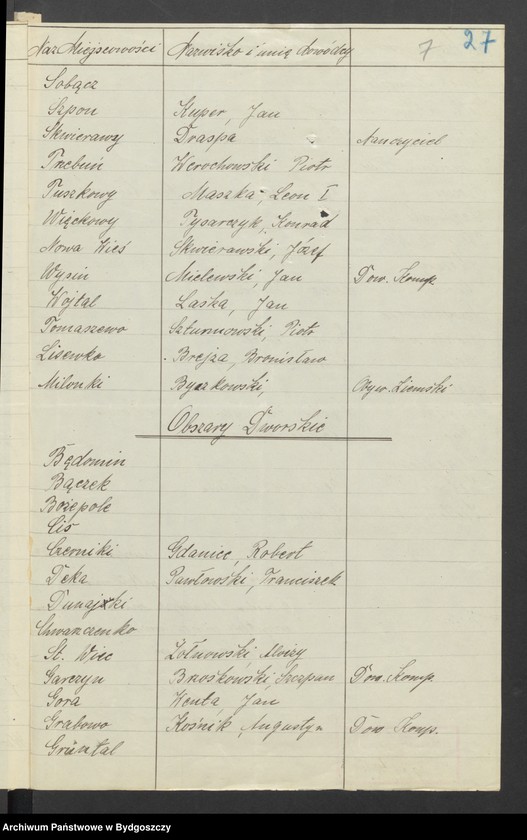 7 27
Naz Miejscowości Nazwisko i imię Dowódcy
Sobącz
Szpon Kuper, Jan
Skwierawy Draspa Nauczyciel
Trzebuń Werochowski Piotr
Tuszkowy Maszka, Leon I
Więckowy Pysarczyk, Konrad
Nowa Wieś Skwierawski, Józef
Wysin Mielewski, Jan Dow. Komp.
Wojtal Laska, Jan
Tomaszewo Szturmowski, Piotr
Lisewko Brejza, Bronisław
Milonki Byczkowski, Obyw. Ziemski
Obszary Dworskie
Będomin
Bączek
Bożepole
Cis
Czerniki Gdaniec, Robert
Deka Pawłowski, Franciszek
Dunajski
Chwarzenko
St. Wiec Żołnowski, Alojzy
Garczyn Brzoskowski, Szczepan Dow. Komp.
Gora Wenta, Jan
Grabowo Kośnik, Augustyn Dow. Komp.
Grüntal
Archiwum Państwowe w Bydgoszczy